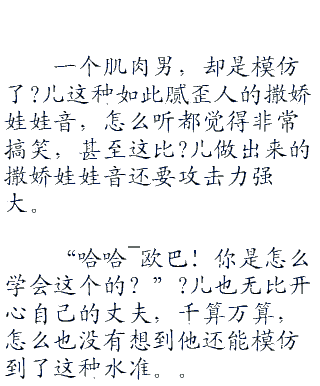 一个肌肉男，却是模仿
了?儿这种如此腻歪人的撒娇
娃娃音，怎么听都觉得非常
搞笑，甚至这比?儿做出来的
撒娇娃娃音还要攻击力强
大。
“哈哈‾欧巴！你是怎么
学会这个的？”?儿也无比开
心自己的丈夫，千算万算，
怎么也没有想到他还能模仿
到了这种水准。。